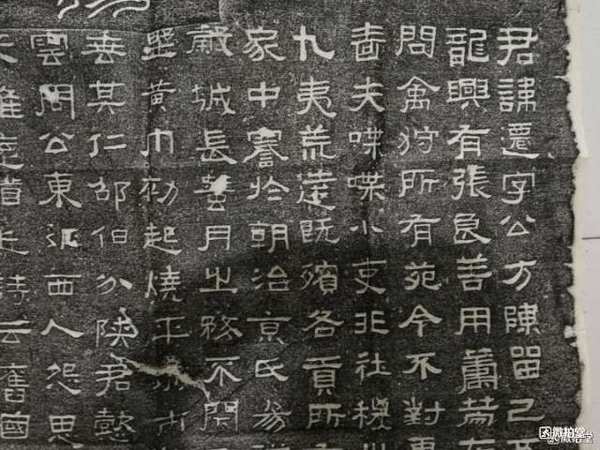 君諱遷字公方陳留己吾
龍興有張良善用籌策在
問禽狩所有苑令不對更
嗇夫喋喋小吏非社稷
九夷荒遠既殯各貢所
家中謇於朝治京氏易
穀城長蠶月之務不閉
野黃巾初起燒平城市
垂其仁邵伯分陝君懿
雲周公東征西人怨思
雖遠猶近詩云舊國
微拍堂